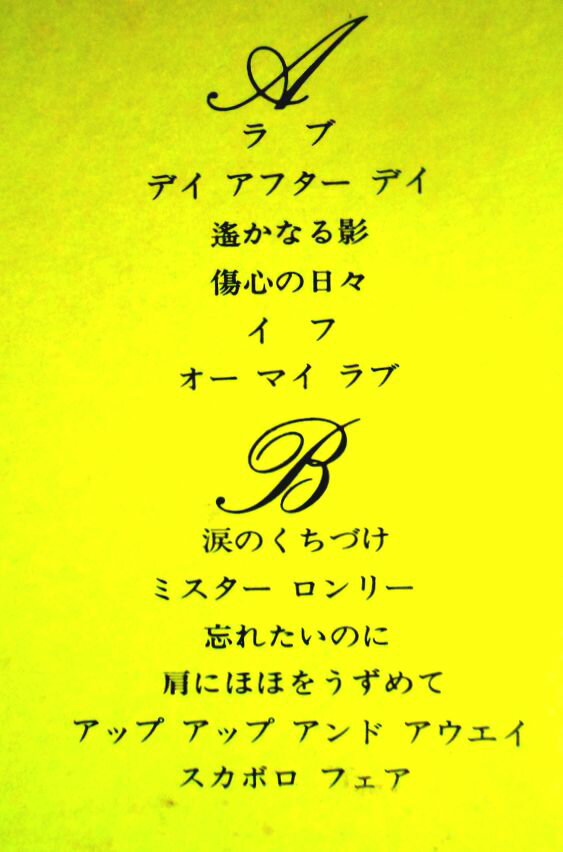 A
ラブ
デイ アフター デイ
遙かなる影
傷心の日々
イフ
オー マイ ラブ
B
涙のくちづけ
ミスター ロンリー
忘れたいのに
肩にほほをうずめて
アップ アップ アンド アウエイ
スカボロ フェア